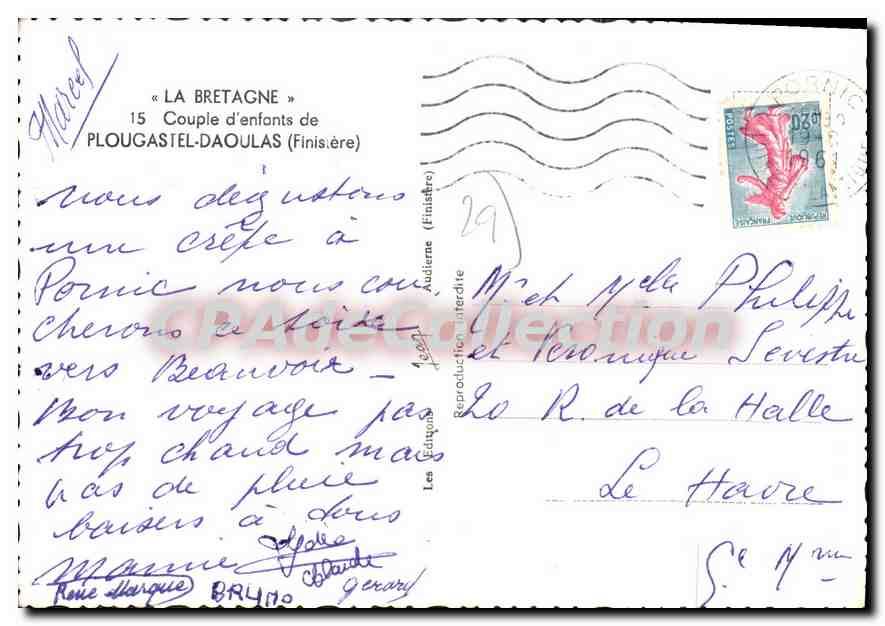 Marcel
« LA BRETAGNE »
15 Couple d'enfants de
PLOUGASTEL-DAOULAS (Finistère)
nous dégustons
une crêpe à
Pornic nous cou
cherons ce soir
vers Beauvoir —
Bon voyage pas
trop chaud mais
pas de pluie
baisers à tous
Mamie
Claude
Gerard
René Marque
BRUNO
Les Editions Jean Audierne (Finistère)
Reproduction interdite
29
PORNIC
0,20
POSTES
REPUBLIQUE FRANÇAISE
Mr et Mela Philippe
et Veronique Levestre
20 R. de la Halle
Le Havre
Se Mme
CPAdeCollection